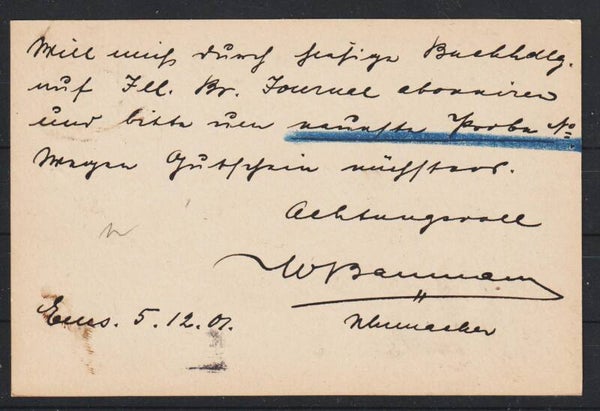 Will mich durch hiesige Buchhdlg.
auf Ill. Br. Journal abonniren
und bitte um neueste Probe No
Wegen Gutschein nächstens.
Achtungsvoll
W Baumann
Uhrmacher
Ems. 5.12.01.